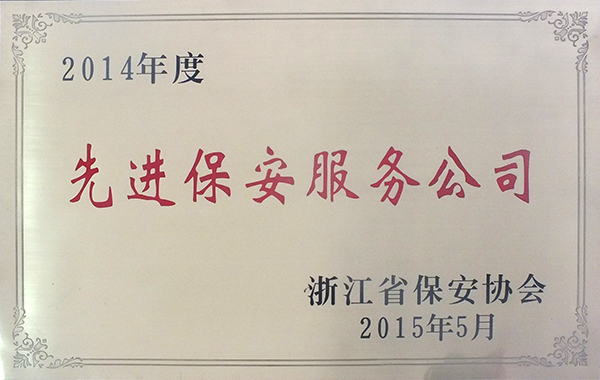 2014年度
先进保安服务公司
浙江省保安协会
2015年5月